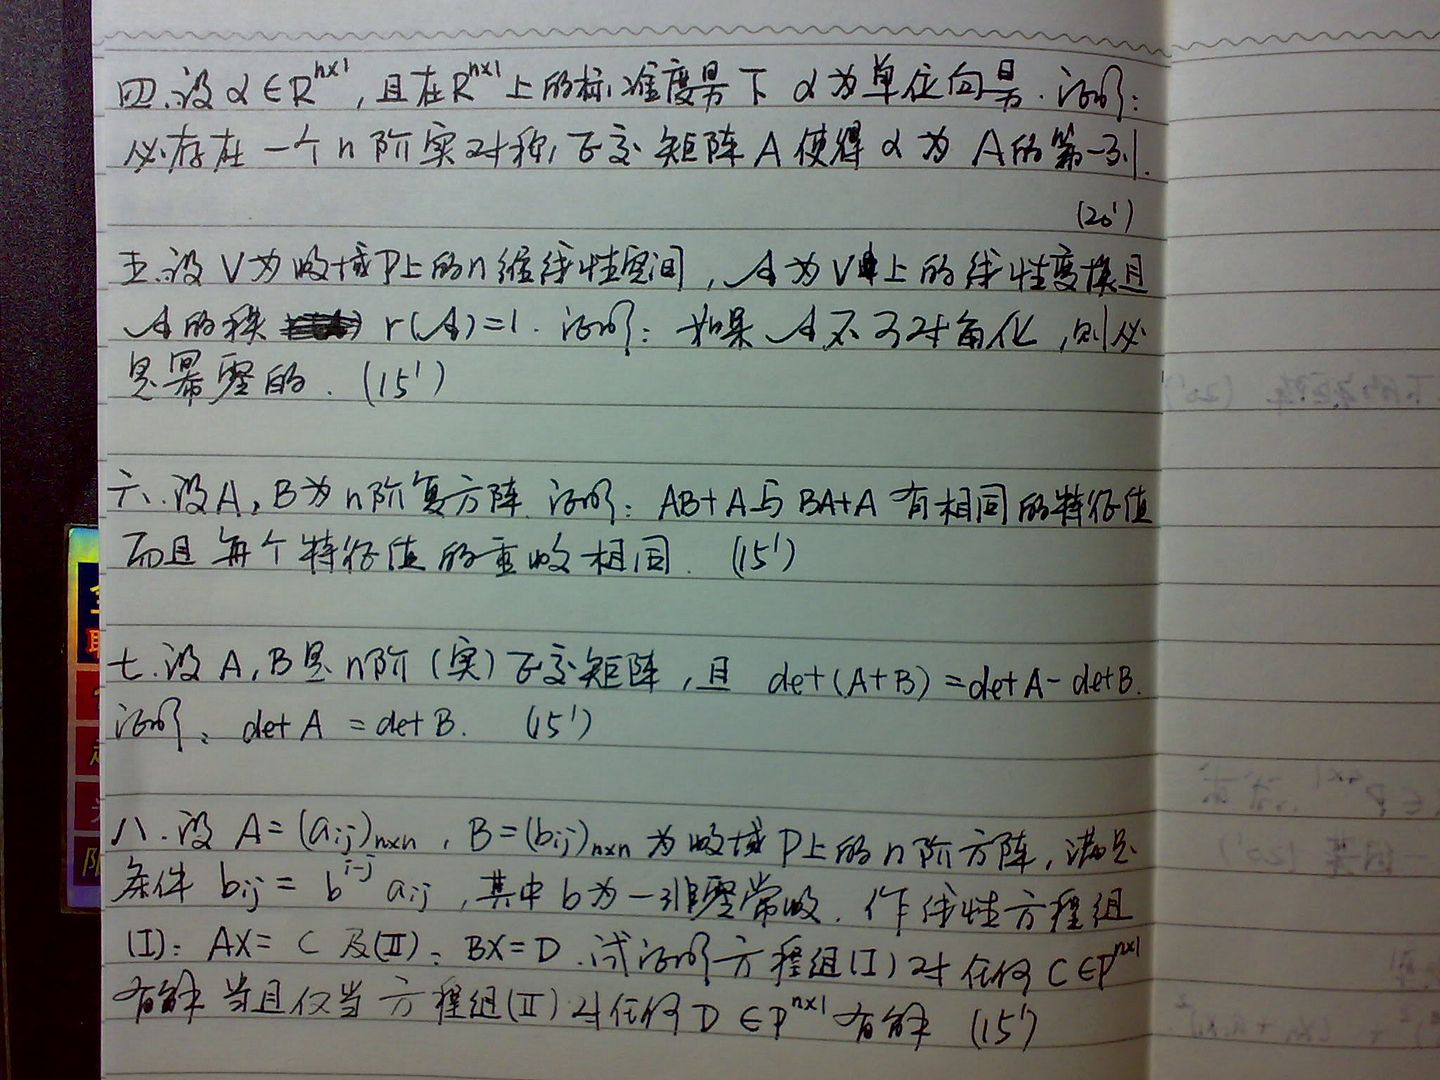 四.设α∈R^{n×1},且在R^{n×1}上的标准度量下α为单位向量.证明:
必存在一个n阶实对称正交矩阵A使得α为A的第一列.
(20')
五.设V为数域P上的n维线性空间,𝒜为V上的线性变换且
𝒜的秩 r(𝒜)=1.证明:如果𝒜不可对角化,则必
是幂零的.(15')
六.设A,B为n阶复方阵.证明:AB+A与BA+A有相同的特征值
而且每个特征值的重数相同.(15')
七.设A,B是n阶(实)正交矩阵,且 det(A+B)=detA-detB.
证明:detA=detB.(15')
八.设A=(aij)n×n,B=(bij)n×n为数域P上的n阶方阵,满足
条件bij=b^{i-j}aij,其中b为一非零常数.作线性方程组
(I):AX=C及(II):BX=D.试证明方程组(I)对任何C∈P^{n×1}
有解当且仅当方程组(II)对任何D∈P^{n×1}有解(15')